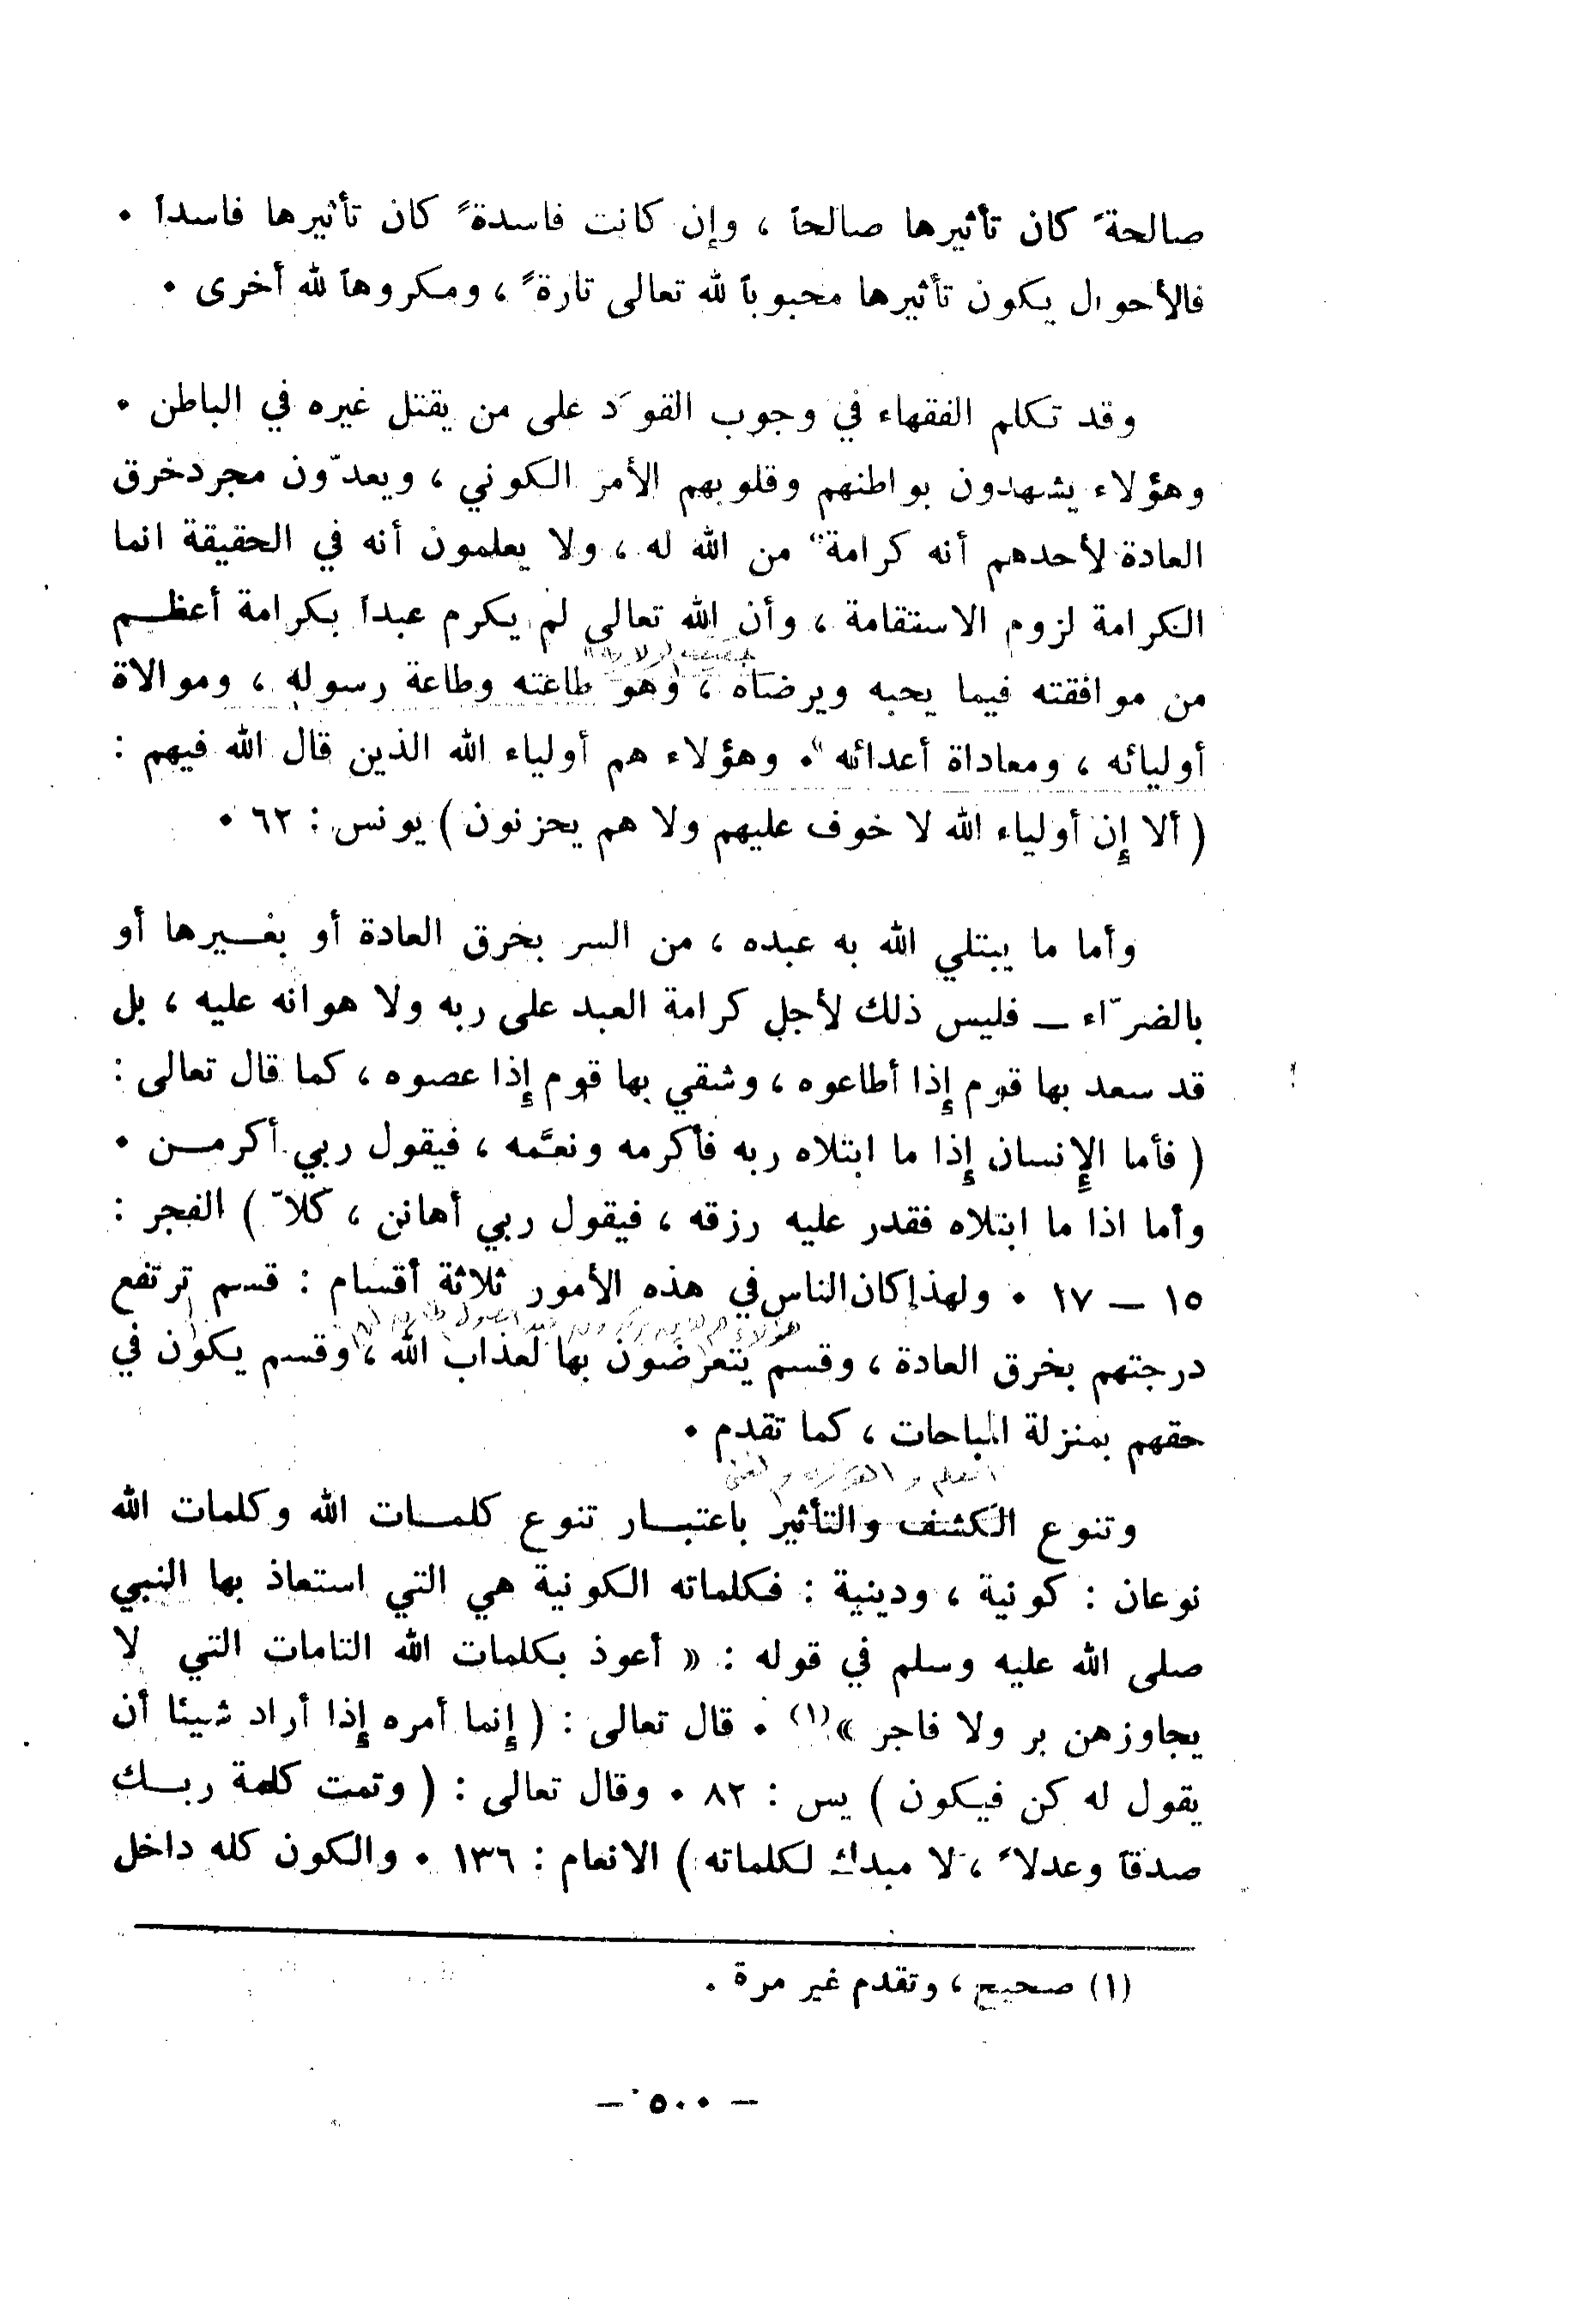 صالحةً كان تأثيرها صالحاً ، وإن كانت فاسدةً كان تأثيرها فاسداً .
فالأحوال يكون تأثيرها محبوباً لله تعالى تارةً ، ومكروهاً لله أخرى .
وقد تكلم الفقهاء في وجوب القوَد على من يقتل غيره في الباطن .
وهؤلاء يشهدون بواطنهم وقلوبهم الأمر الكوني ، ويعدّون مجرد خرق
العادة لأحدهم أنه كرامة من الله له ، ولا يعلمون أنه في الحقيقة انما
الكرامة لزوم الاستقامة ، وأن الله تعالى لم يكرم عبداً بكرامة أعظم
من موافقته فيما يحبه ويرضاه ، وهو طاعته وطاعة رسوله ، وموالاة
أوليائه ، ومعاداة أعدائه . وهؤلاء هم أولياء الله الذين قال الله فيهم :
( ألا إن أولياء الله لا خوف عليهم ولا هم يحزنون ) يونس : ٦٢ .
وأما ما يبتلي الله به عبده ، من السر بخرق العادة أو بغيرها أو
بالضرّاء — فليس ذلك لأجل كرامة العبد على ربه ولا هوانه عليه ، بل
قد سعد بها قوم إذا أطاعوه ، وشقي بها قوم إذا عصوه ، كما قال تعالى :
( فأما الإنسان إذا ما ابتلاه ربه فأكرمه ونعَّمه ، فيقول ربي أكرمن .
وأما اذا ما ابتلاه فقدر عليه رزقه ، فيقول ربي أهانن ، كلاّ ) الفجر :
١٥ — ١٧ . ولهذا كان الناس في هذه الأمور ثلاثة أقسام : قسم ترتفع
درجتهم بخرق العادة ، وقسم يتعرضون بها لعذاب الله ، وقسم يكون في
حقهم بمنزلة المباحات ، كما تقدم .
وتنوع الكشف والتأثير باعتبار تنوع كلمات الله وكلمات الله
نوعان : كونية ، ودينية : فكلماته الكونية هي التي استعاذ بها النبي
صلى الله عليه وسلم في قوله : « أعوذ بكلمات الله التامات التي لا
يجاوزهن بر ولا فاجر »(١) . قال تعالى : ( إنما أمره إذا أراد شيئا أن
يقول له كن فيكون ) يس : ٨٢ . وقال تعالى : ( وتمت كلمة ربك
صدقاً وعدلاً ، لا مبدل لكلماته ) الانعام : ١٣٦ . والكون كله داخل
(١) صحيح ، وتقدم غير مرة .
— ٥٠٠ —